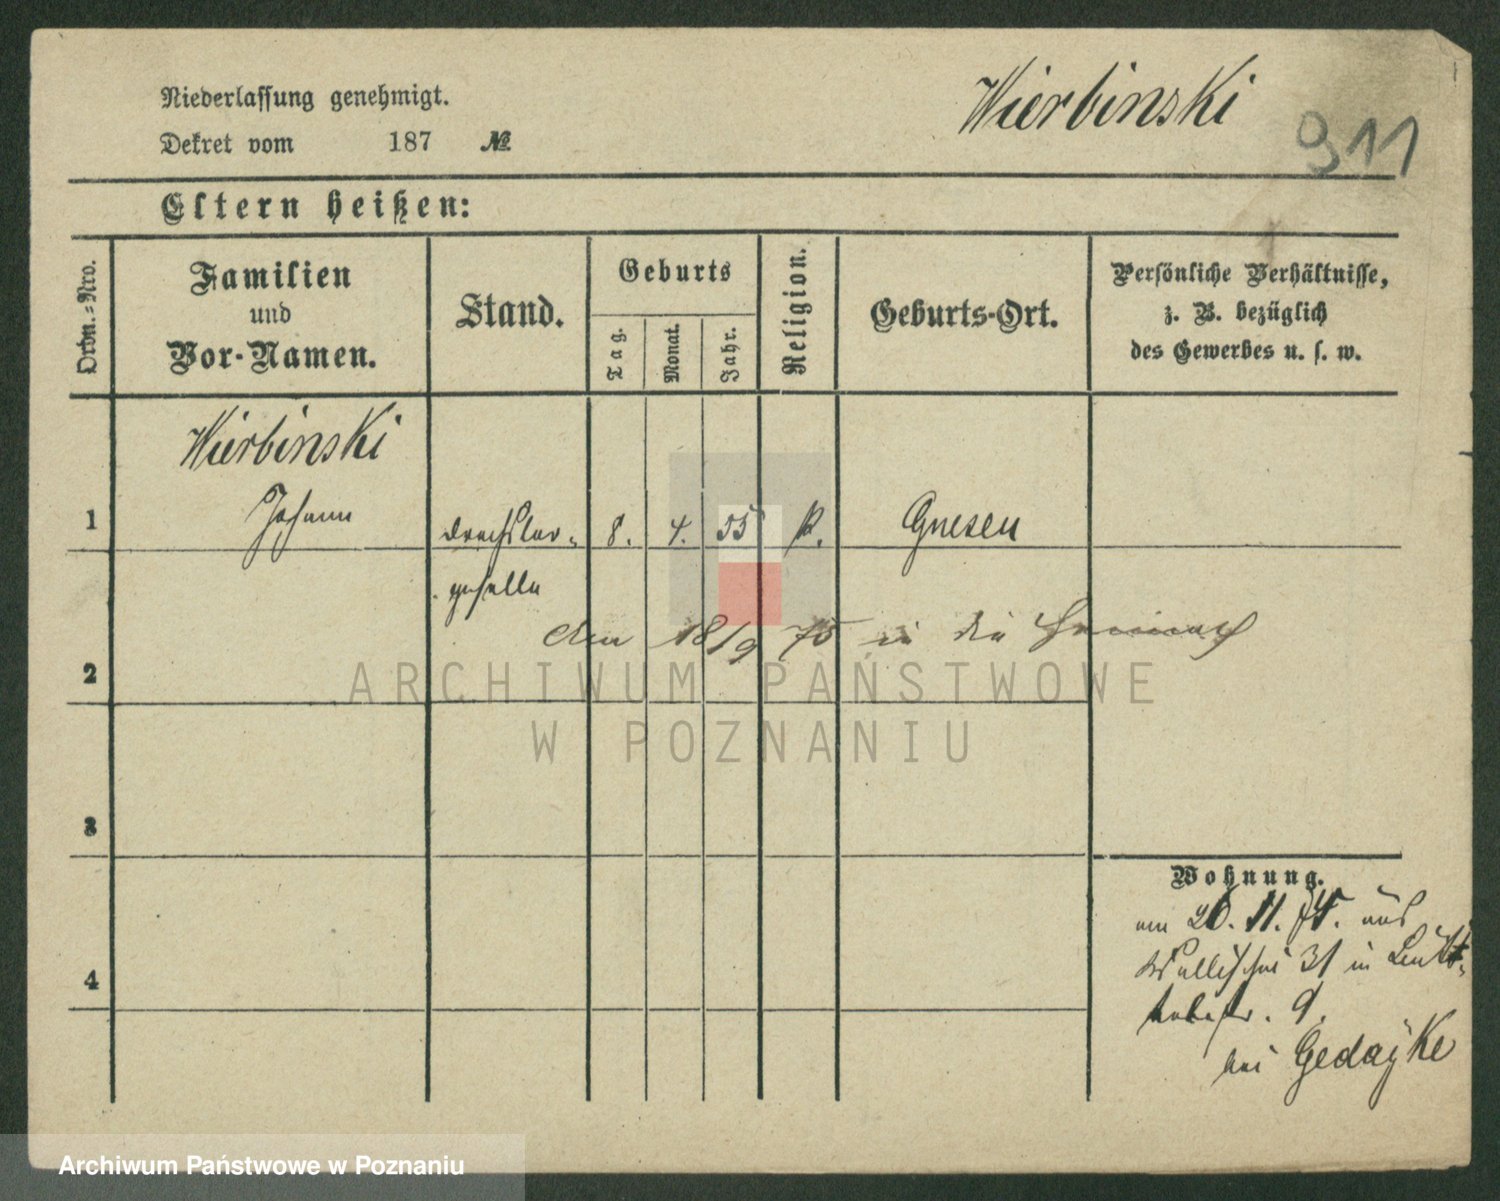 Niederlassung genehmigt.
Dekret vom 187 №
Wierbinski
911
Eltern heißen:
Ordn.-Nro.
Familien
und
Vor-Namen.
Stand.
Geburts
Tag.
Monat.
Jahr.
Religion.
Geburts-Ort.
Persönliche Verhältnisse,
z. B. bezüglich
des Gewerbes u. s. w.
Wierbinski
1 Johann Drechsler- 8. 4. 55 k. Gnesen
geselle
den 18/9 75 in die Heimath
2
ARCHIWUM PAŃSTWOWE
W POZNANIU
3
Wohnung.
am 26. 11. 74. aus
4 Wallischei 31 in
9.
bei Gedayke
Archiwum Państwowe w Poznaniu